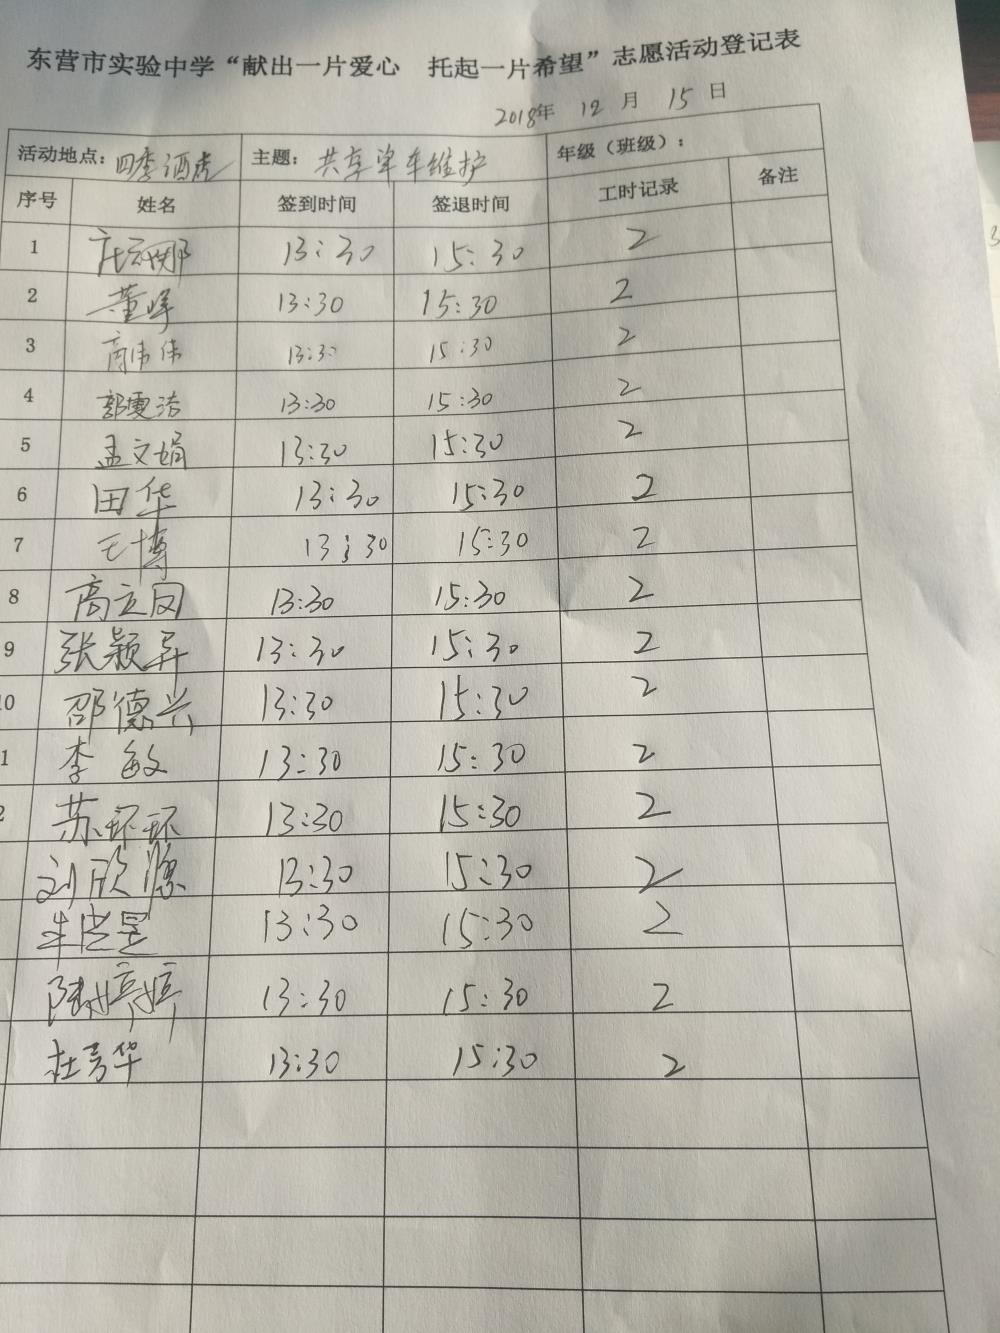 东营市实验中学“献出一片爱心 托起一片希望”志愿活动登记表
2018年 12 月 15 日
活动地点： 四季酒店 主题： 共享单车维护 年级（班级）：
序号 姓名 签到时间 签退时间 工时记录 备注
1 13:30 15:30 2
2 董峰 13:30 15:30 2
3 商伟伟 13:30 15:30 2
4 郭雯洁 13:30 15:30 2
5 孟文娟 13:30 15:30 2
6 田华 13:30 15:30 2
7 王博 13:30 15:30 2
8 高立国 13:30 15:30 2
9 张颖异 13:30 15:30 2
10 邵德兴 13:30 15:30 2
1 李敏 13:30 15:30 2
2 苏环环 13:30 15:30 2
刘欣 13:30 15:30 2
13:30 15:30 2
陈婷婷 13:30 15:30 2
杜芳华 13:30 15:30 2